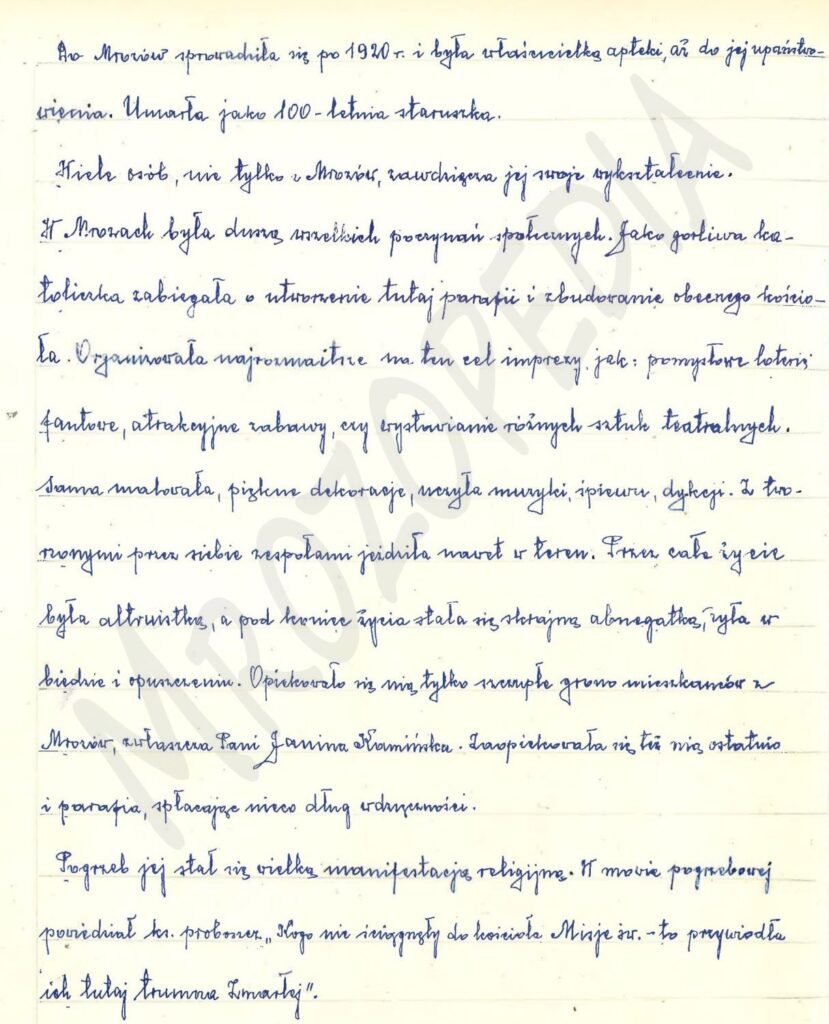 Do Mrozów sprowadziła się po 1920 r. i była właścicielką apteki, aż do jej upaństwo-
wienia. Umarła jako 100-letnia staruszka.
Wiele osób, nie tylko z Mrozów, zawdzięcza jej swoje wykształcenie.
W Mrozach była duszą wszelkich poczynań społecznych. Jako gorliwa ka-
toliczka zabiegała o utworzenie tutaj parafii i zbudowanie obecnego kościo-
ła. Organizowała najrozmaitsze na ten cel imprezy, jak: pomysłowe loterie
fantowe, atrakcyjne zabawy, czy wystawianie różnych sztuk teatralnych.
Sama malowała, piękne dekoracje, uczyła muzyki, śpiewu, dykcji. Z two-
rzonymi przez siebie zespołami jeździła nawet w teren. Przez całe życie
była altruistką, a pod koniec życia stała się skrajną abnegatką, żyła w
biedzie i opuszczeniu. Opiekowało się nią tylko szczupłe grono mieszkańców z
Mrozów, zwłaszcza Pani Janina Kamińska. Zaopiekowała się też nią ostatnio
i parafia, spłacając nieco dług wdzięczności.
Pogrzeb jej stał się wielką manifestacją religijną. W mowie pogrzebowej
powiedział ks. proboszcz „Kogo nie ściągnęły do kościoła Misje św. - to przywiodła
ich tutaj trumna Zmarłej".
MROZOPEDIA